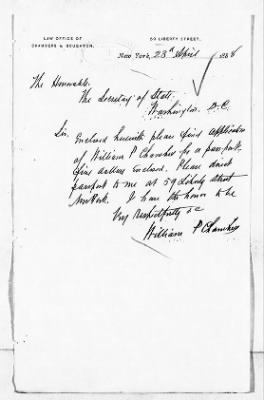 LAW OFFICE OF
CHAMBERS & BOUGHTON,
59 LIBERTY STREET,
New York, 23d April 1888
The Honorable
The Secretary of State,
Washington D.C.
Sir,
Enclosed herewith please find application
of William P Chambers for a passport.
five dollars enclosed. Please direct
passport to me at 59 Liberty Street
New York. I have the honor to be
Very respectfully &c
William P Chambers